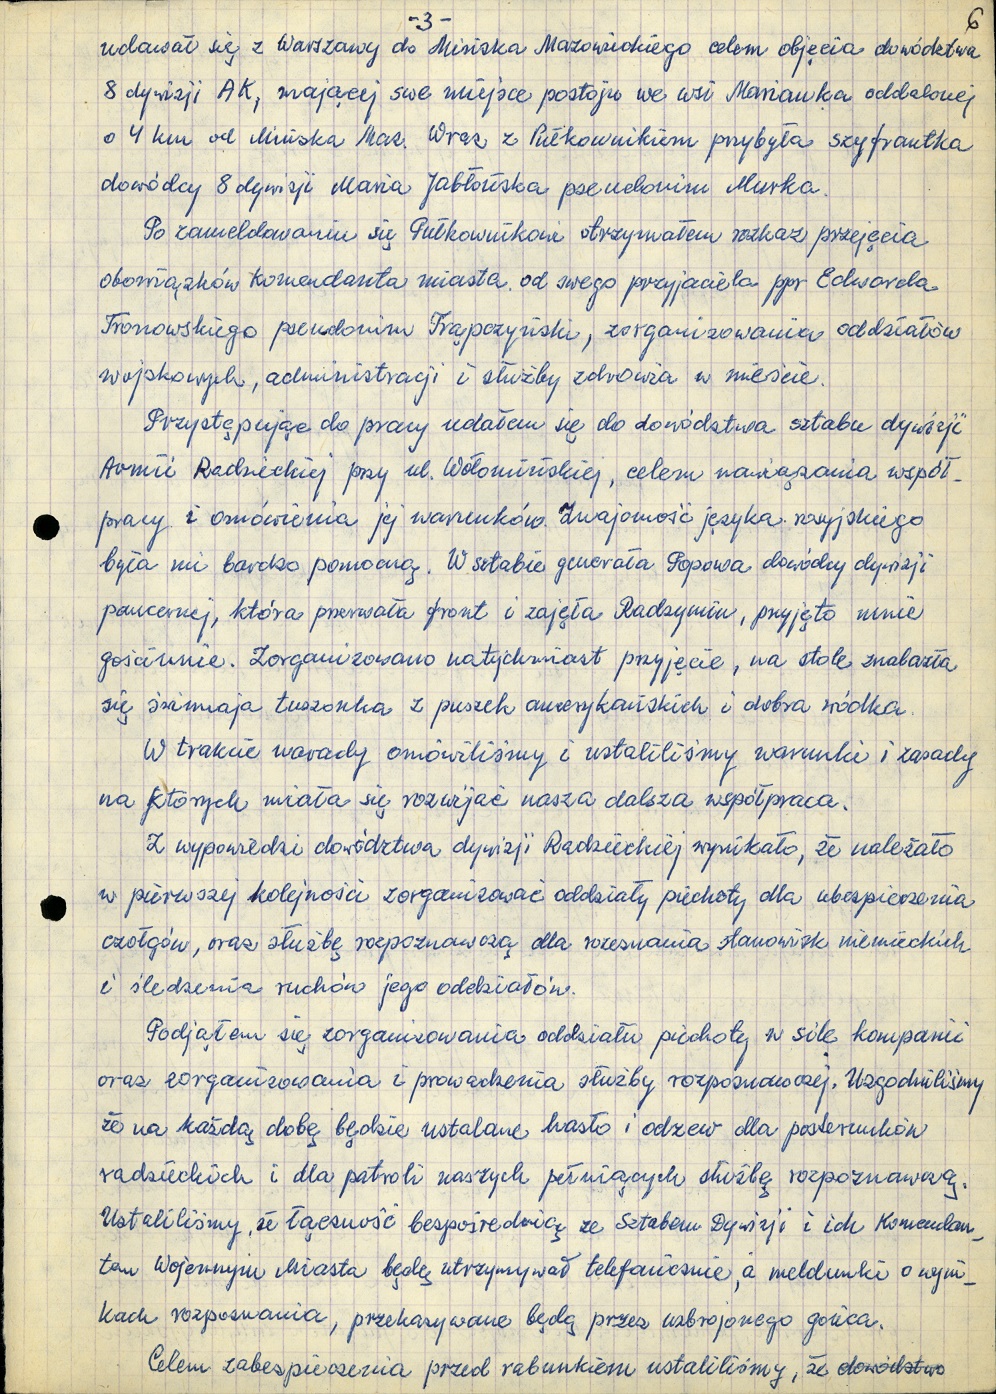 -3-
6
udawał się z Warszawy do Mińska Mazowieckiego celem objęcia dowództwa
8 dywizji AK, mającej swe miejsce postoju we wsi Marianka oddalonej
o 4 km od Mińska Maz. Wraz z Pułkownikiem przybyła szyfrantka
dowódcy 8 dywizji Maria Jabłońska pseudonim Murka.
Po zameldowaniu się Pułkownikowi otrzymałem rozkaz przejęcia
obowiązków Komendanta miasta od swego przyjaciela ppr Edwarda
Tronowskiego pseudonim Trąpczyński, zorganizowania oddziałów
wojskowych, administracji i służby zdrowia w mieście.
Przystępując do pracy udałem się do dowództwa sztabu dywizji
Armii Radzieckiej przy ul. Wołomińskiej, celem nawiązania współ-
pracy i omówienia jej warunków. Znajomość języka rosyjskiego
była mi bardzo pomocną. W sztabie generała Popowa dowódcy dywizji
pancernej, która przerwała front i zajęła Radzymin, przyjęto mnie
gościnnie. Zorganizowano natychmiast przyjęcie, na stole znalazła
się świniaja tuszonka z puszek amerykańskich i dobra wódka.
W trakcie narady omówiliśmy i ustaliliśmy warunki i zasady
na których miała się rozwijać nasza dalsza współpraca.
Z wypowiedzi dowództwa dywizji Radzieckiej wynikało, że należało
w pierwszej kolejności zorganizować oddziały piechoty dla ubezpieczenia
czołgów, oraz służbę rozpoznawczą dla rozeznania stanowisk niemieckich
i śledzenia ruchów jego oddziałów.
Podjąłem się zorganizowania oddziału piechoty w sile kompanii
oraz zorganizowania i prowadzenia służby rozpoznawczej. Uzgodniliśmy
że na każdą dobę będzie ustalane hasło i odzew dla posterunków
radzieckich i dla patroli naszych pełniących służbę rozpoznawczą.
Ustaliliśmy, że łączność bezpośrednią ze Sztabem Dywizji i ich Komendan-
tem Wojennym Miasta będę utrzymywał telefonicznie, a meldunki o wyni-
kach rozpoznania, przekazywane będą przez uzbrojonego gońca.
Celem zabezpieczenia przed rabunkiem ustaliliśmy, że dowództwo